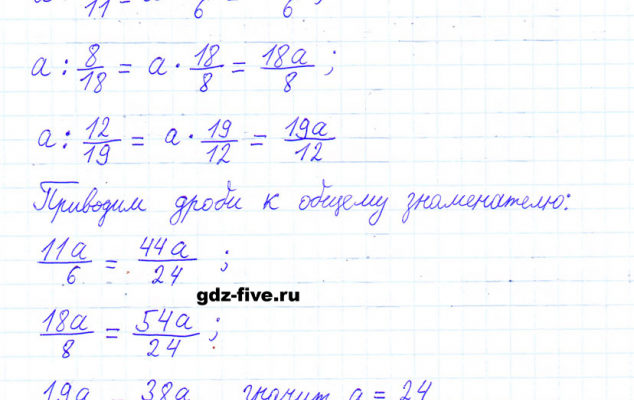 11 6 6 ;
a : 8/18 = a · 18/8 = 18a/8 ;
a : 12/19 = a · 19/12 = 19a/12
Приводим дроби к общему знаменателю:
11a/6 = 44a/24 ;
gdz-five.ru
18a/8 = 54a/24 ;
19a = 38a значит a = 24